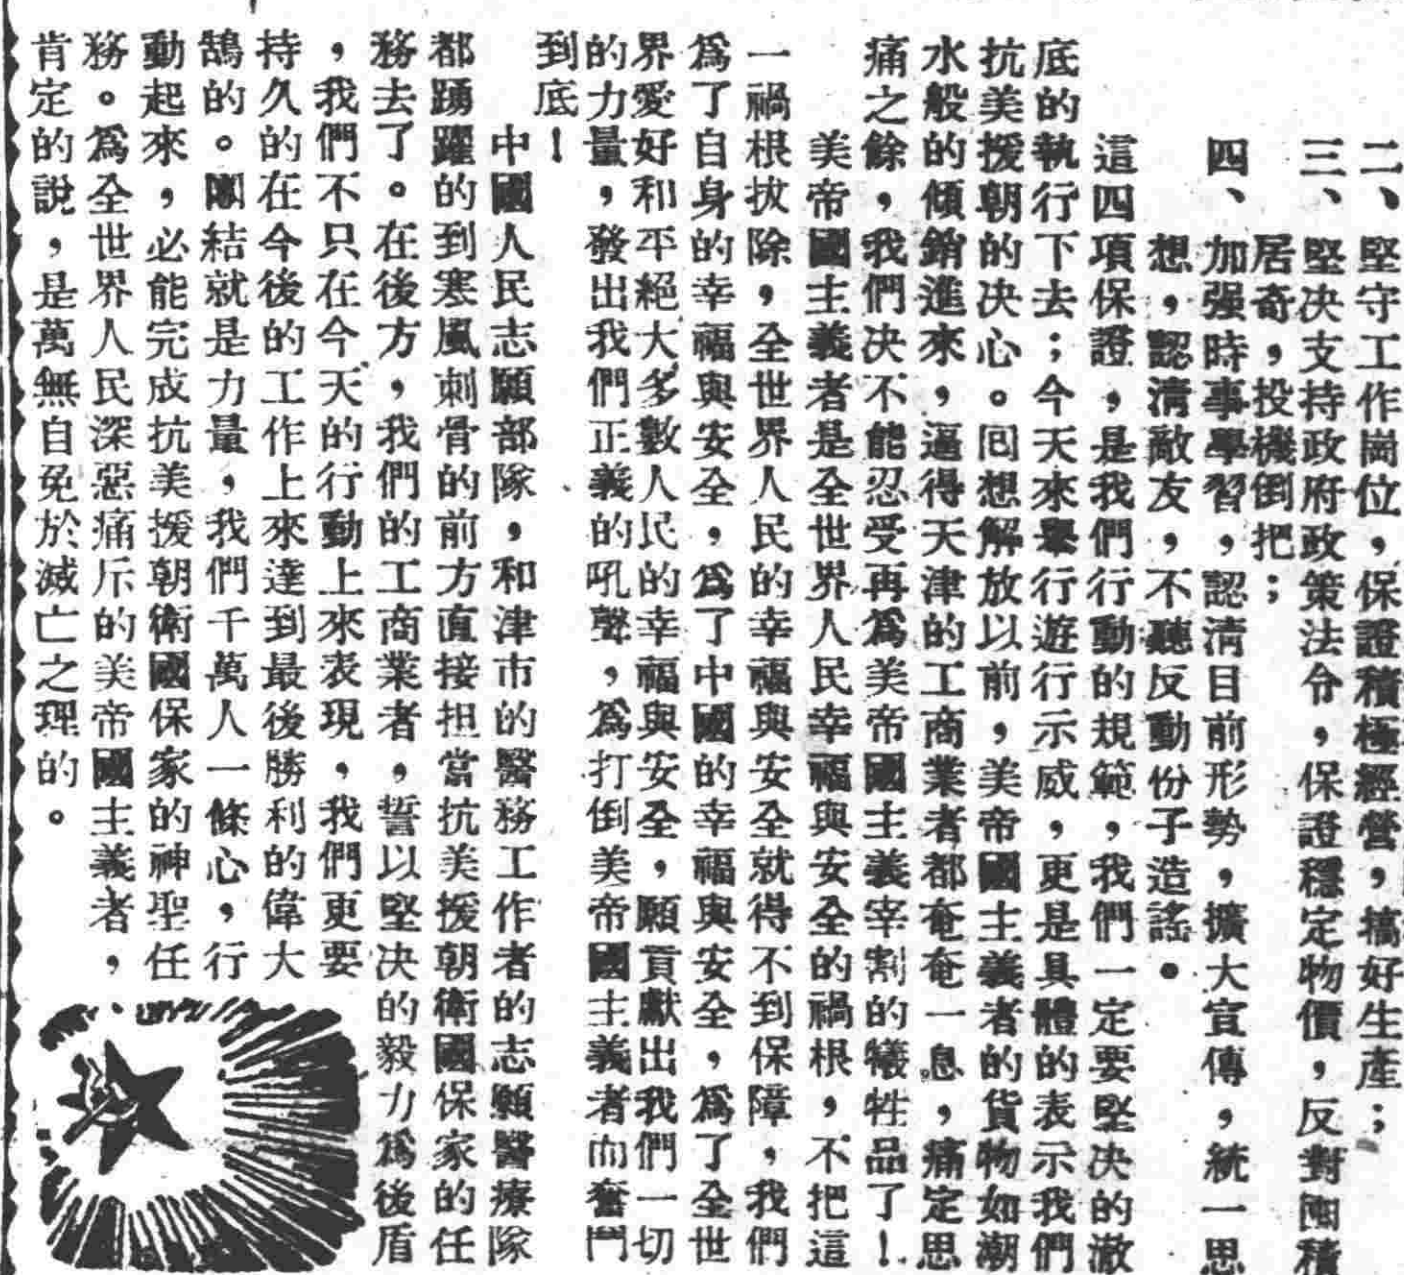 二、堅守工作崗位，保證積極經營，搞好生產；
三、堅决支持政府政策法令，保證穩定物價，反對囤積
居奇，投機倒把；
四、加强時事學習，認清目前形勢，擴大宣傳，統一思
想，認清敵友，不聽反動份子造謠。
這四項保證，是我們行動的規範，我們一定要堅决的澈
底的執行下去；今天來舉行遊行示威，更是具體的表示我們
抗美援朝的决心。囘想解放以前，美帝國主義者的貨物如潮
水般的傾銷進來，逼得天津的工商業者都奄奄一息，痛定思
痛之餘，我們决不能忍受再爲美帝國主義宰割的犧牲品了！
美帝國主義者是全世界人民幸福與安全的禍根，不把這
一禍根拔除，全世界人民的幸福與安全就得不到保障，我們
爲了自身的幸福與安全，爲了中國的幸福與安全，爲了全世
界愛好和平絕大多數人民的幸福與安全，願貢獻出我們一切
的力量，發出我們正義的吼聲，爲打倒美帝國主義者而奮鬥
到底！
中國人民志願部隊，和津市的醫務工作者的志願醫療隊
都踴躍的到寒風刺骨的前方直接担當抗美援朝衛國保家的任
務去了。在後方，我們的工商業者，誓以堅决的毅力爲後盾
，我們不只在今天的行動上來表現，我們更要
持久的在今後的工作上來達到最後勝利的偉大
鵠的。團結就是力量，我們千萬人一條心，行
動起來，必能完成抗美援朝衛國保家的神聖任
務。爲全世界人民深惡痛斥的美帝國主義者，
肯定的說，是萬無自免於滅亡之理的。